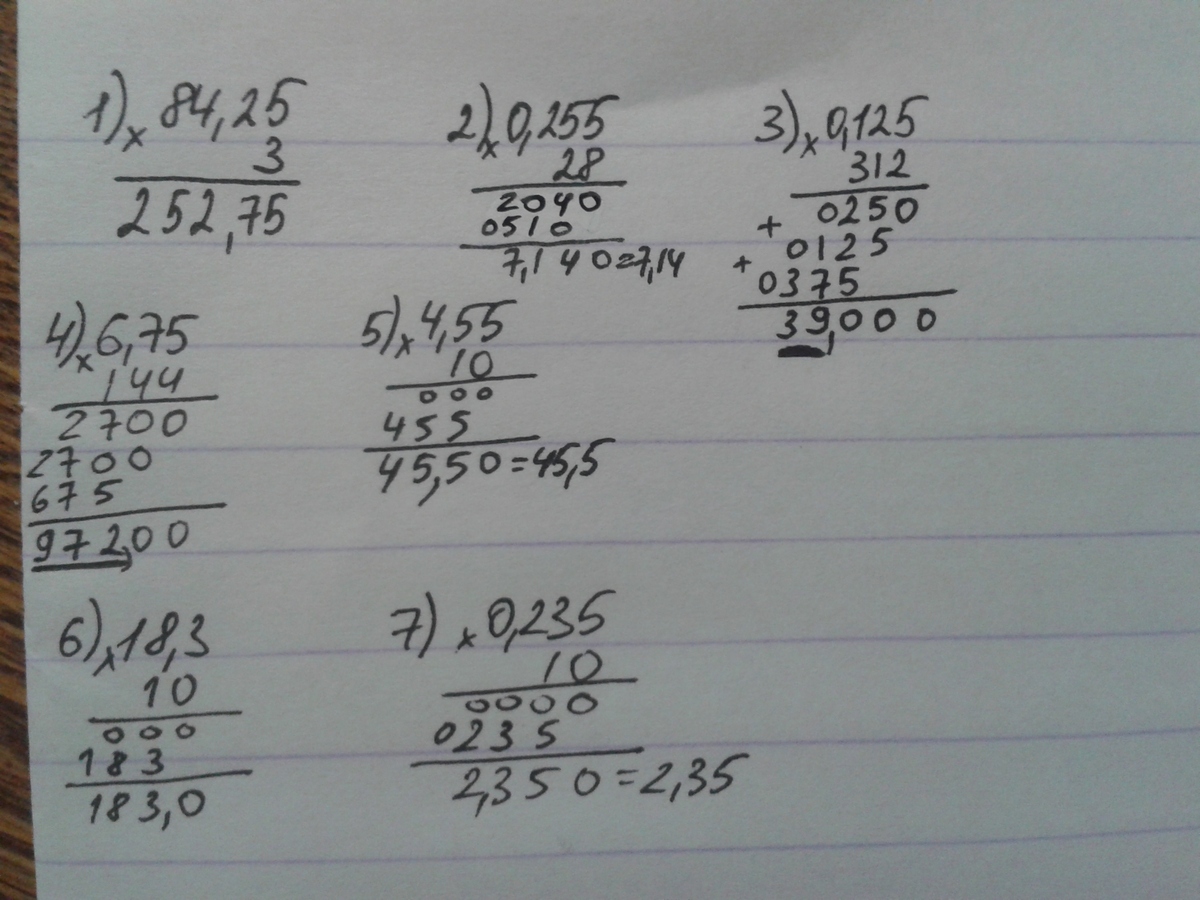 1) × 84,25
3
252,75
2) × 0,255
28
2040
0510
7,140=7,14
3) × 0,125
312
+ 0250
+ 0125
0375
39,000
4) × 6,75
144
2700
2700
675
972,00
5) × 4,55
10
000
455
45,50=45,5
6) × 18,3
10
000
183
183,0
7) × 0,235
10
0000
0235
2,350=2,35